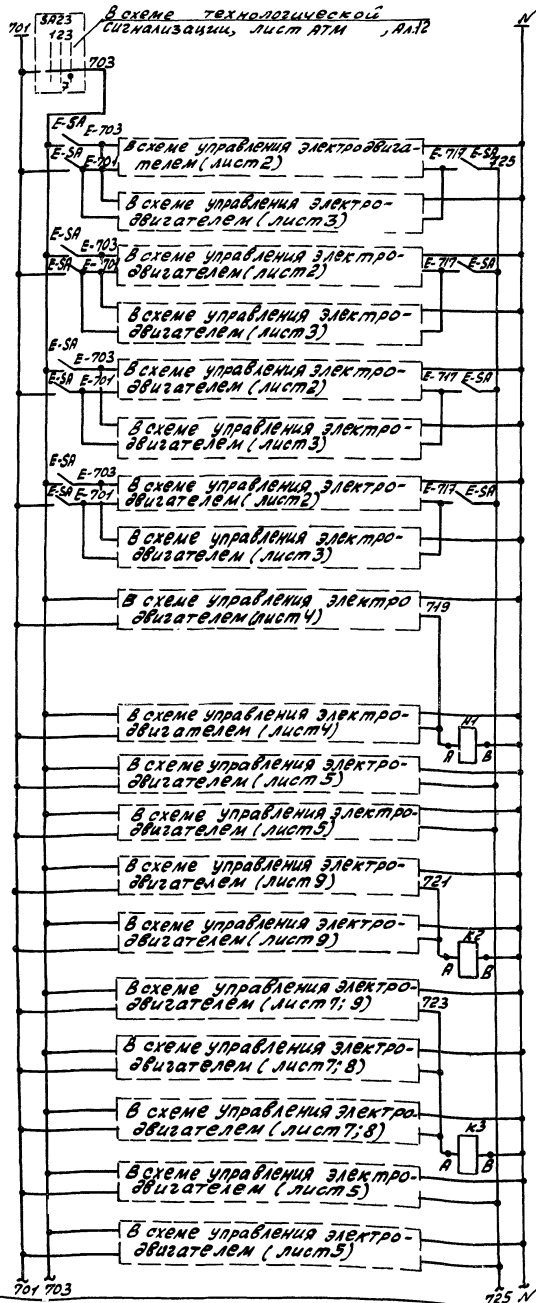 701
SA23
123
7
В схеме технологической
сигнализации, лист АТМ , Ал.12
N
703
E-SA E-703
E-SA E-701
В схеме управления электродвига-
телем (лист 2)
E-717 E-SA
725
В схеме управления электро-
двигателем (лист 3)
E-SA E-703
E-SA E-701
В схеме управления электро-
двигателем (лист 2)
E-717 E-SA
В схеме управления электро-
двигателем (лист 3)
E-SA E-703
E-SA E-701
В схеме управления электро-
двигателем (лист 2)
E-717 E-SA
В схеме управления электро-
двигателем (лист 3)
E-SA E-703
E-SA E-701
В схеме управления электро-
двигателем (лист 2)
E-717 E-SA
В схеме управления электро-
двигателем (лист 3)
В схеме управления электро
двигателем (лист 4)
719
В схеме управления электро-
двигателем (лист 4)
К1
А В
В схеме управления электро-
двигателем (лист 5)
В схеме управления электро-
двигателем (лист 5)
В схеме управления электро-
двигателем (лист 9)
721
В схеме управления электро-
двигателем (лист 9)
К2
А В
В схеме управления электро-
двигателем (лист 7; 9)
723
В схеме управления электро-
двигателем (лист 7; 8)
В схеме управления электро-
двигателем (лист 7; 8)
К3
А В
В схеме управления электро-
двигателем (лист 5)
В схеме управления электро-
двигателем (лист 5)
701 703
725 N